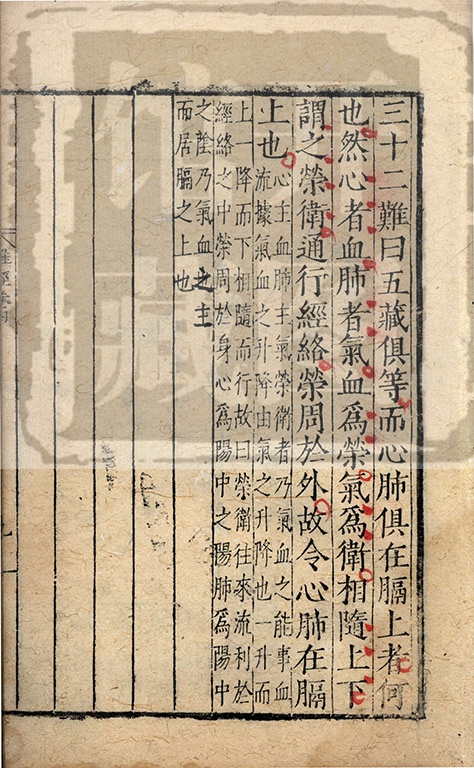 三十二難曰五藏俱等而心肺俱在膈上者何
也然心者血肺者氣血爲榮氣爲衛相隨上下
謂之榮衛通行經絡榮周於外故令心肺在膈
上也
心主血肺主氣榮衛者乃氣血之能事血
流據氣血之升降由氣之升降也一升而
上一降而下相隨而行故曰榮衛往來流利於
經絡之中榮周於身心爲陽中之陽肺爲陽中
之陰乃氣血之主
而居膈之上也